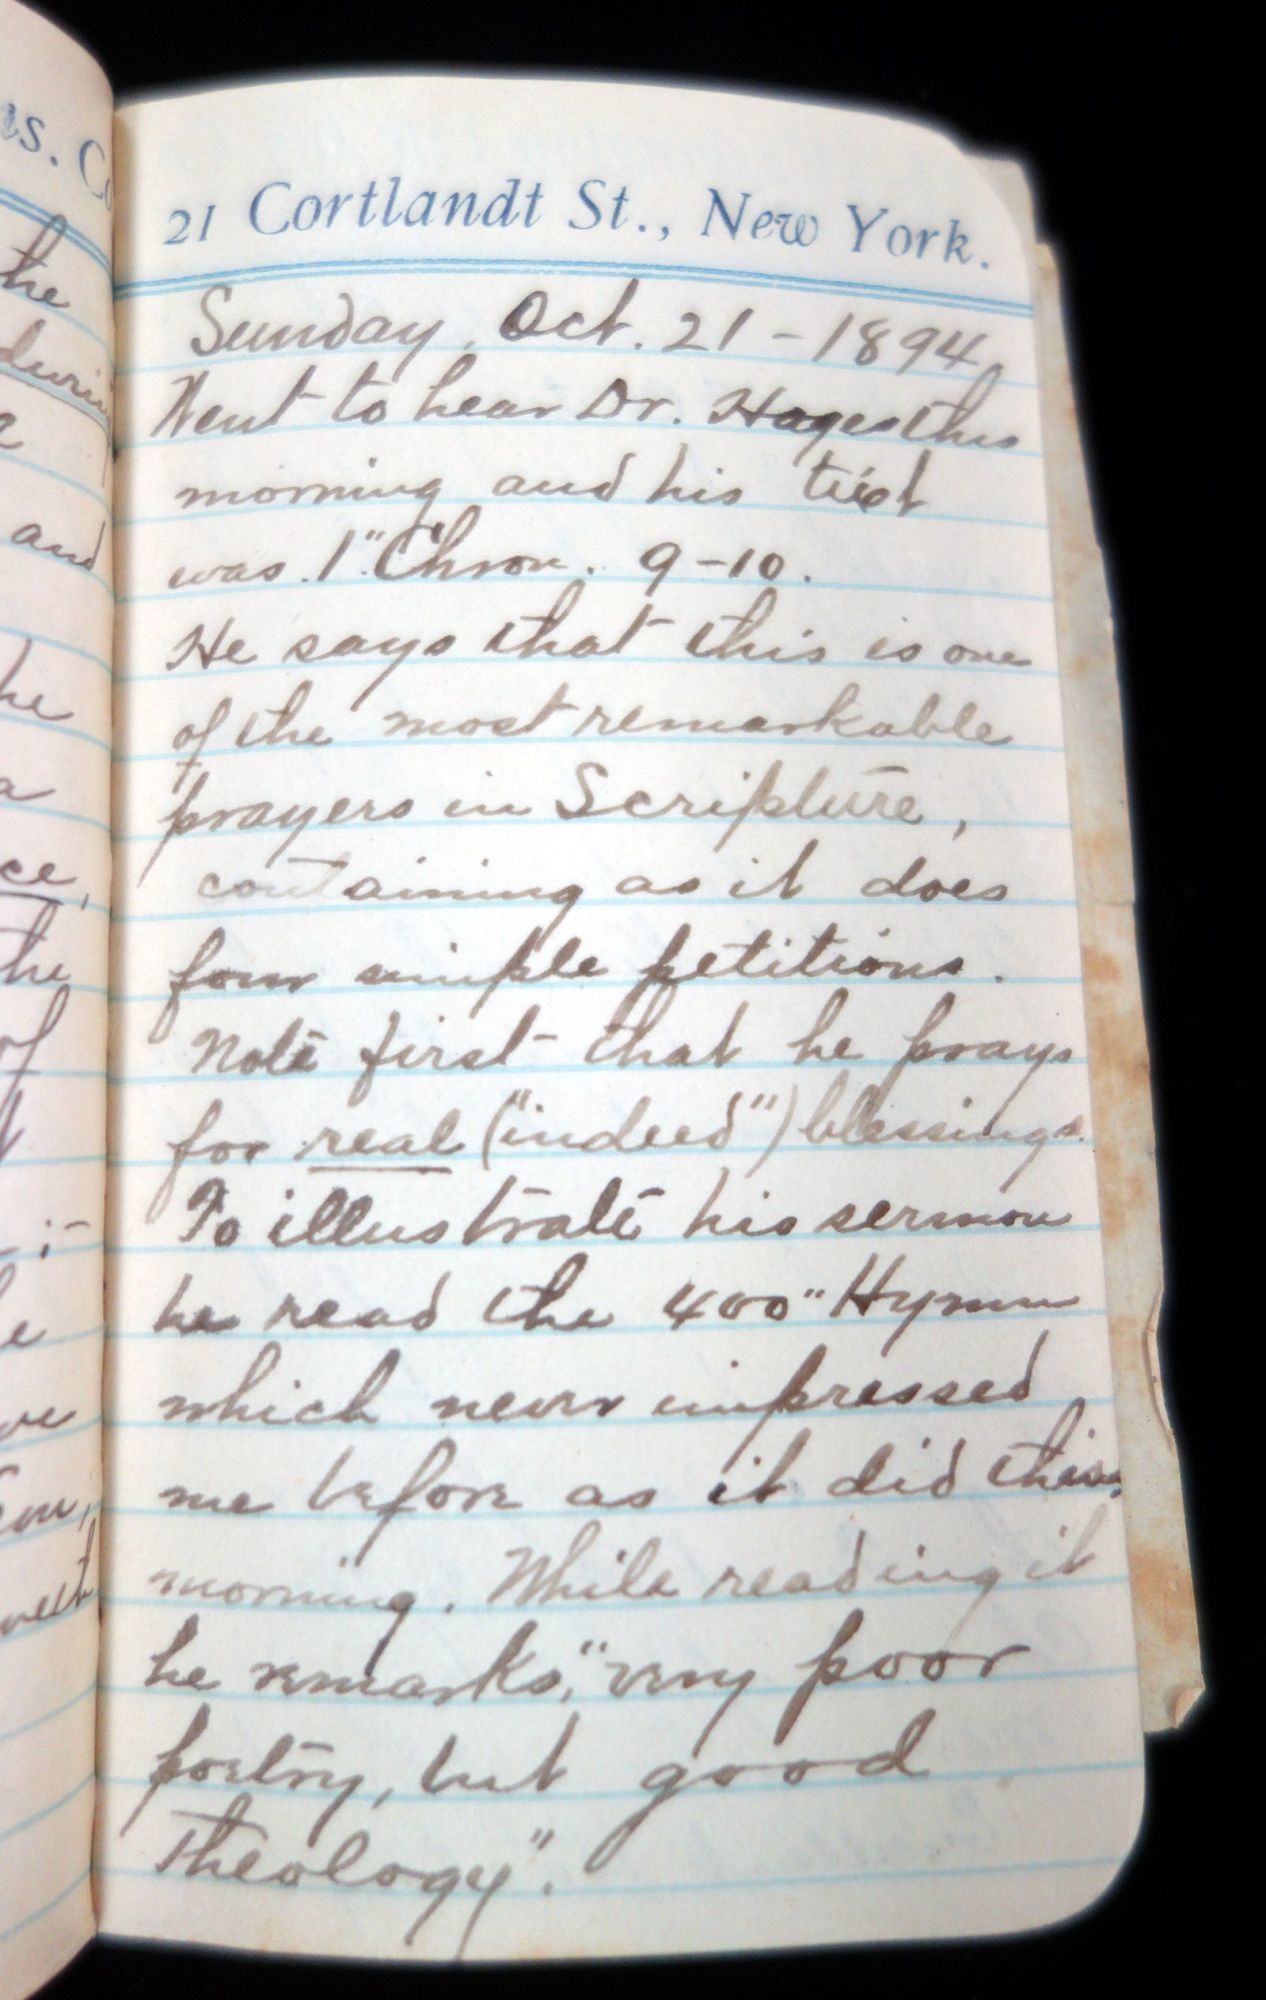 21 Cortlandt St., New York.
Sunday, Oct. 21 - 1894
Went to hear Dr. Hages this
morning and his text
was 1" Chron. 9-10.
He says that this is one
of the most remarkable
prayers in Scripture,
containing as it does
four simple petitions.
Note first that he prays
for real ("indeed") blessings.
To illustrate his sermon
he read the 400" Hymn
which never impressed
me before as it did this
morning. While reading it
he remarks, "very poor
poetry, but good
theology".